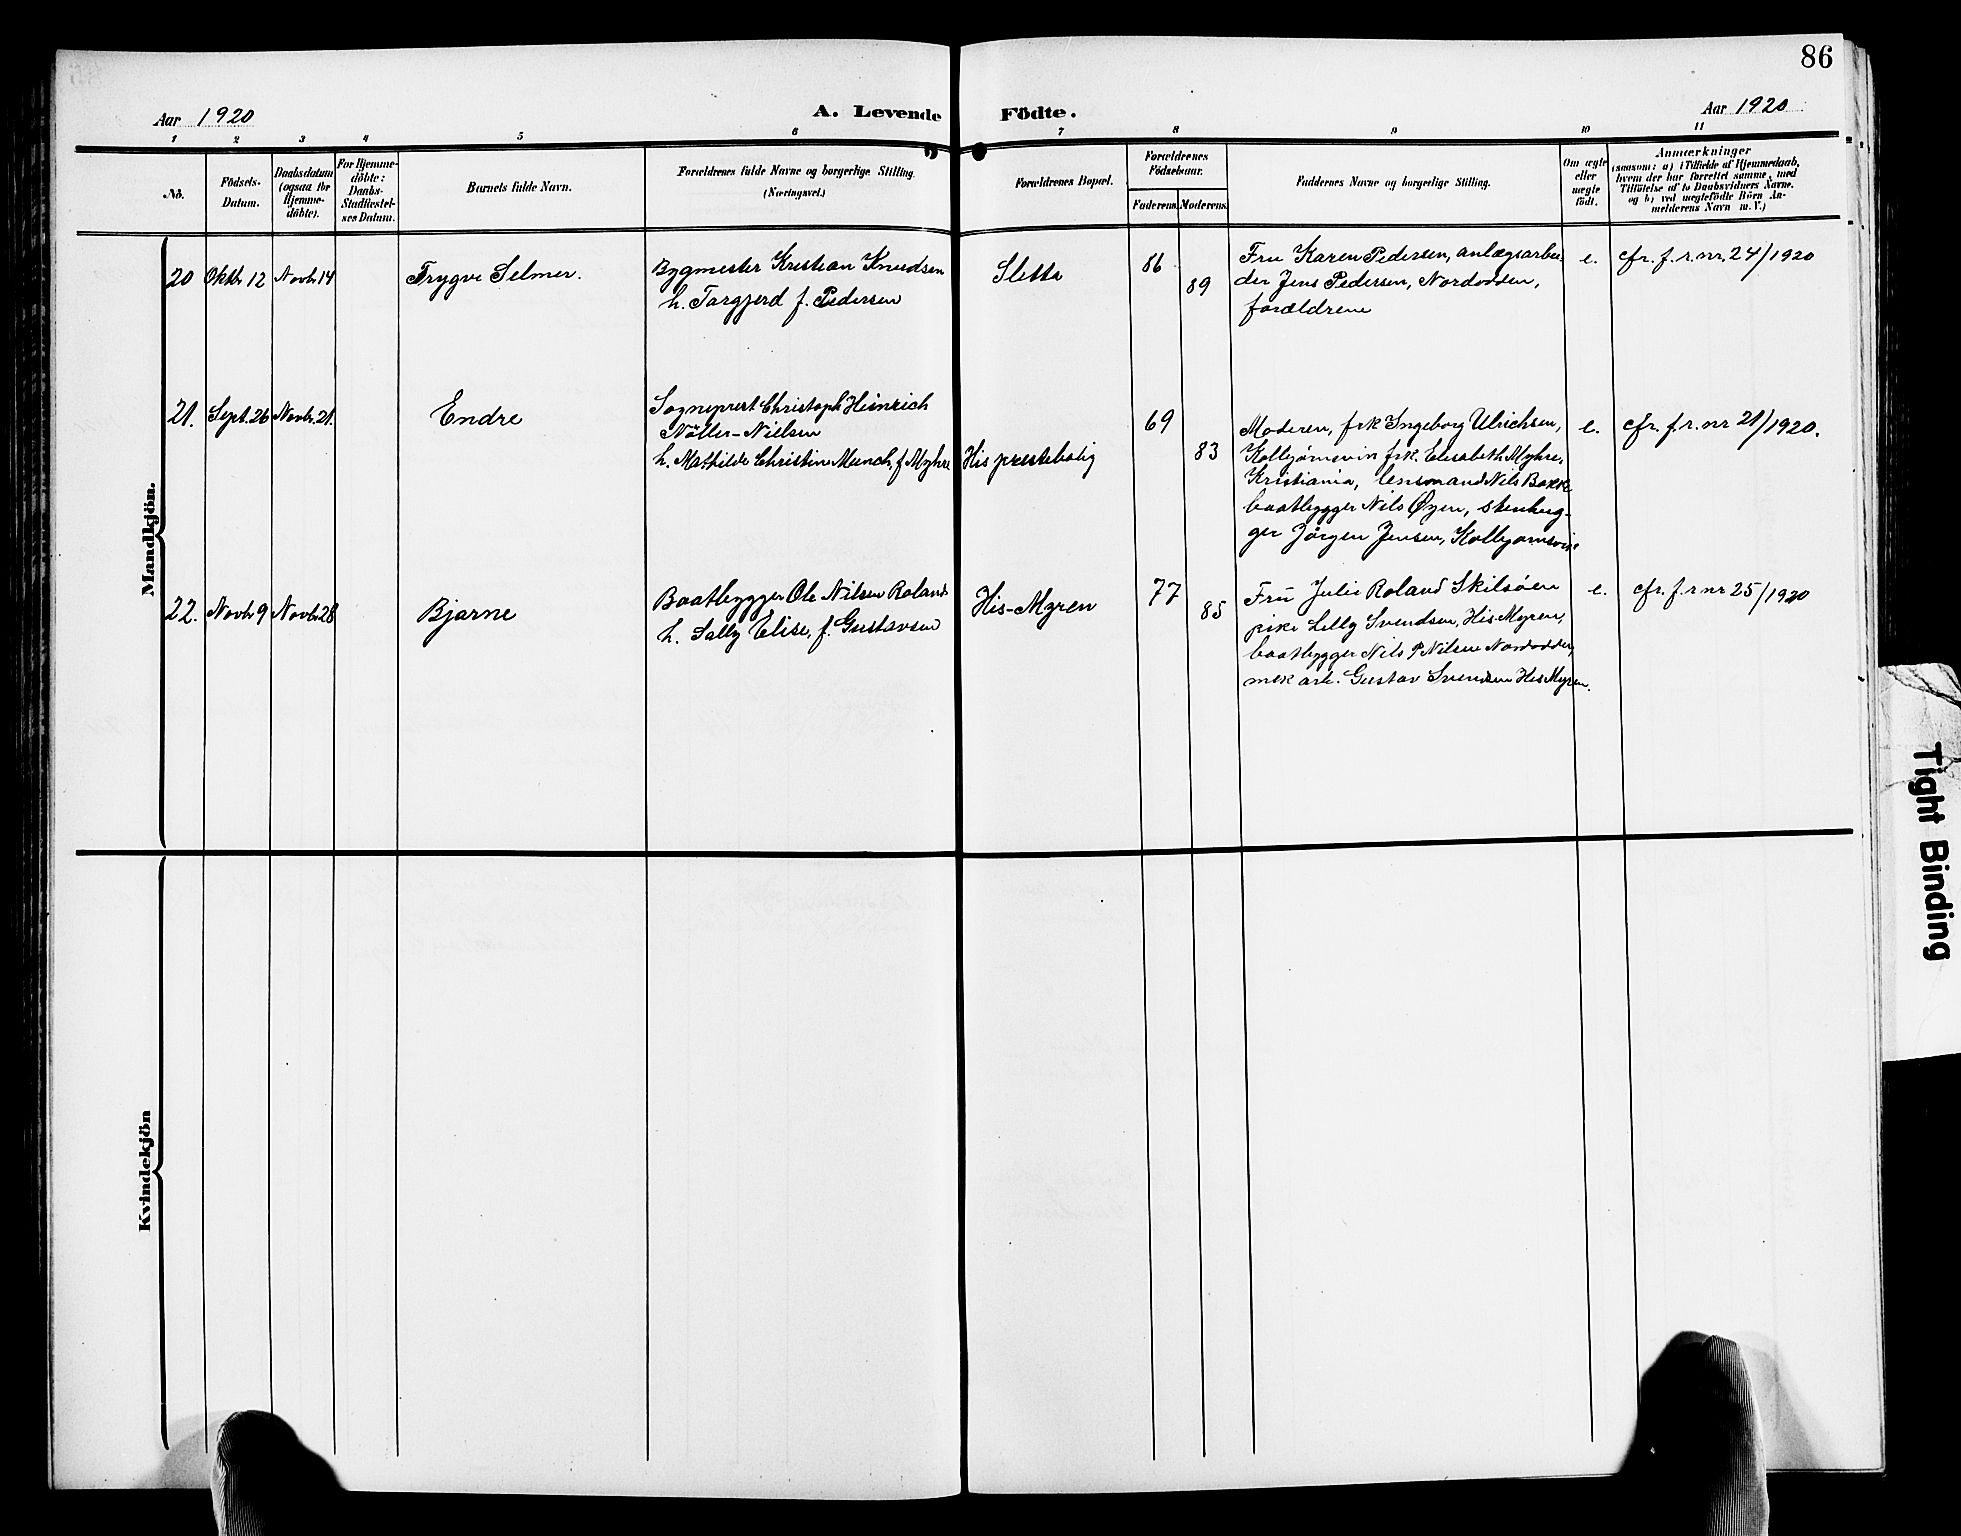 86
Aar 1920
A. Levende Födte.
Aar 1920
1 2 3 4 5 6 7 8 9 10 11
No.
Födsels-
Datum.
Daabsdatum
(ogsaa for
Hjemme-
döbte).
For Hjemme-
döbte:
Daabs-
Stadfæstel-
ses Datum.
Barnets fulde Navn.
Forældrenes fulde Navne og borgerlige Stilling.
(Næringsvei.)
Forældrenes Bopæl.
Forældrenes
Födselsaar.
Faderens Moderens
Faddernes Navne og borgerlige Stilling.
Om ægte
eller
uægte
födt.
Anmærkninger
(saasom: a) i Tilfælde af Hjemmedaab,
hvem der har forrettet samme, med
Tilföielse af to Daabsvidners Navne.
og b) ved uægtefödte Börn An-
melderens Navn m. V.)
Mandkjön.
20 Oktb 12 Novb. 14
Trygve Selmer.
Bygmester Kristian Knudsen
h. Torgjerd f. Pedersen
Sletta
86
89
Fru Karen Pedersen, anlægsarbei
der Jens Pedersen, Nordodden,
forældrene
e.
cfr. f. r. nr. 24/1920
21. Sept. 26 Novb. 21.
Endre
Sogneprest Christoph Heinrich
Nöller-Nielsen
h. Mathilde Christine Munch, f Myhre
His prestebolig
69
83
Moderen, frk Ingeborg Ulrichsen,
Kolbjørnsvin frk. Elisabeth Myhre,
Kristiania, lensmand Nils Bakk
baatbygger Nils Øyen, stenhug-
ger Jörgen Jensen, Kolbjørnsvik
e.
cfr. f. r. nr 21/1920.
22. Novb. 9 Novb. 28
Bjarne
Baatbygger Ole Nilsen Roland
h. Sally Elise, f. Gustavsen
His-Myren
77
85
Fru Julie Roland Skilsöen
pike Lilly Svendsen, His-Myren,
baatbygger Nils P Nilsen Nordodden,
mek arb. Gustav Svendsen His Myren.
e.
cfr. f. r nr 25/1920
Kvindekjön
Tight Binding